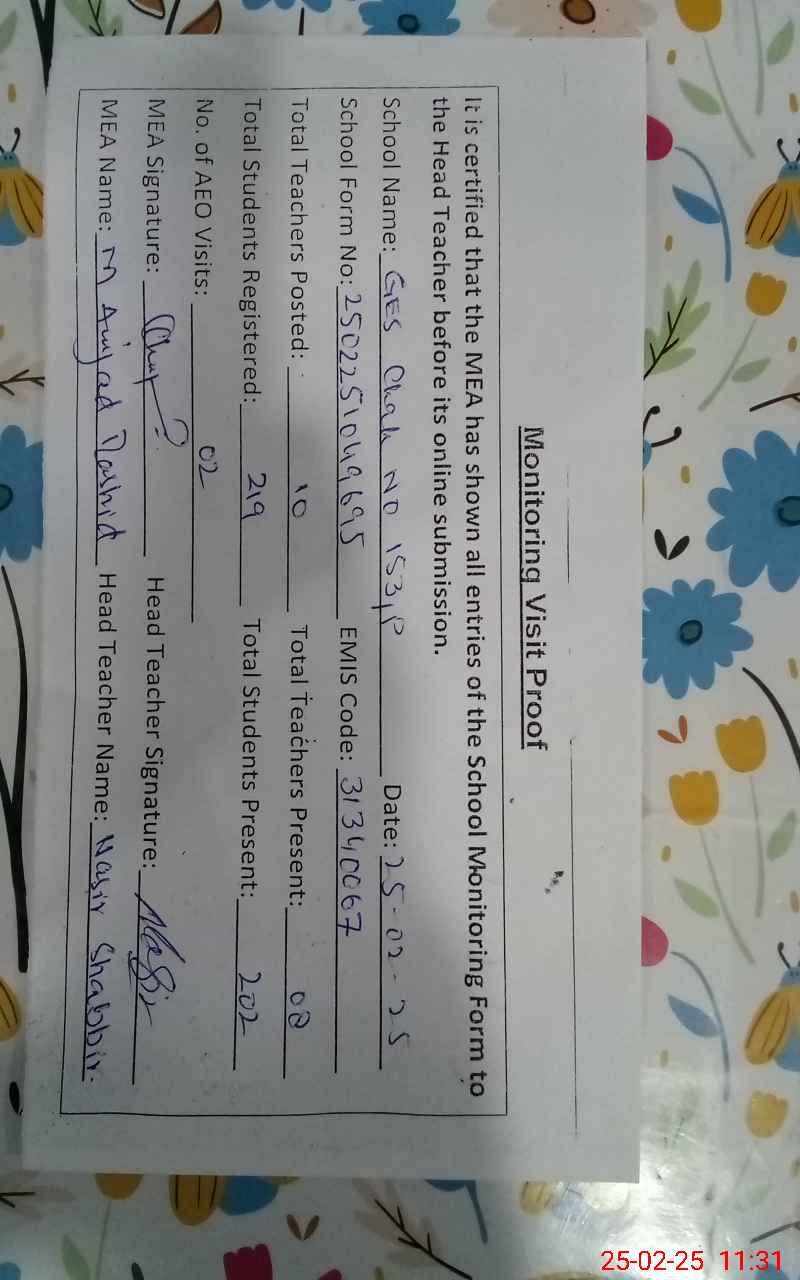 Monitoring Visit Proof
It is certified that the MEA has shown all entries of the School Monitoring Form to
the Head Teacher before its online submission.
School Name: GES Chak NO 153,P Date: 25-02-25
School Form No: 2502251049695 EMIS Code: 31340067
Total Teachers Posted: 10 Total Teachers Present: 08
Total Students Registered: 219 Total Students Present: 202
No. of AEO Visits: 02
MEA Signature: Head Teacher Signature: Nasir
MEA Name: M Amjad Rashid Head Teacher Name: Nasir Shabbir.
25-02-25 11:31